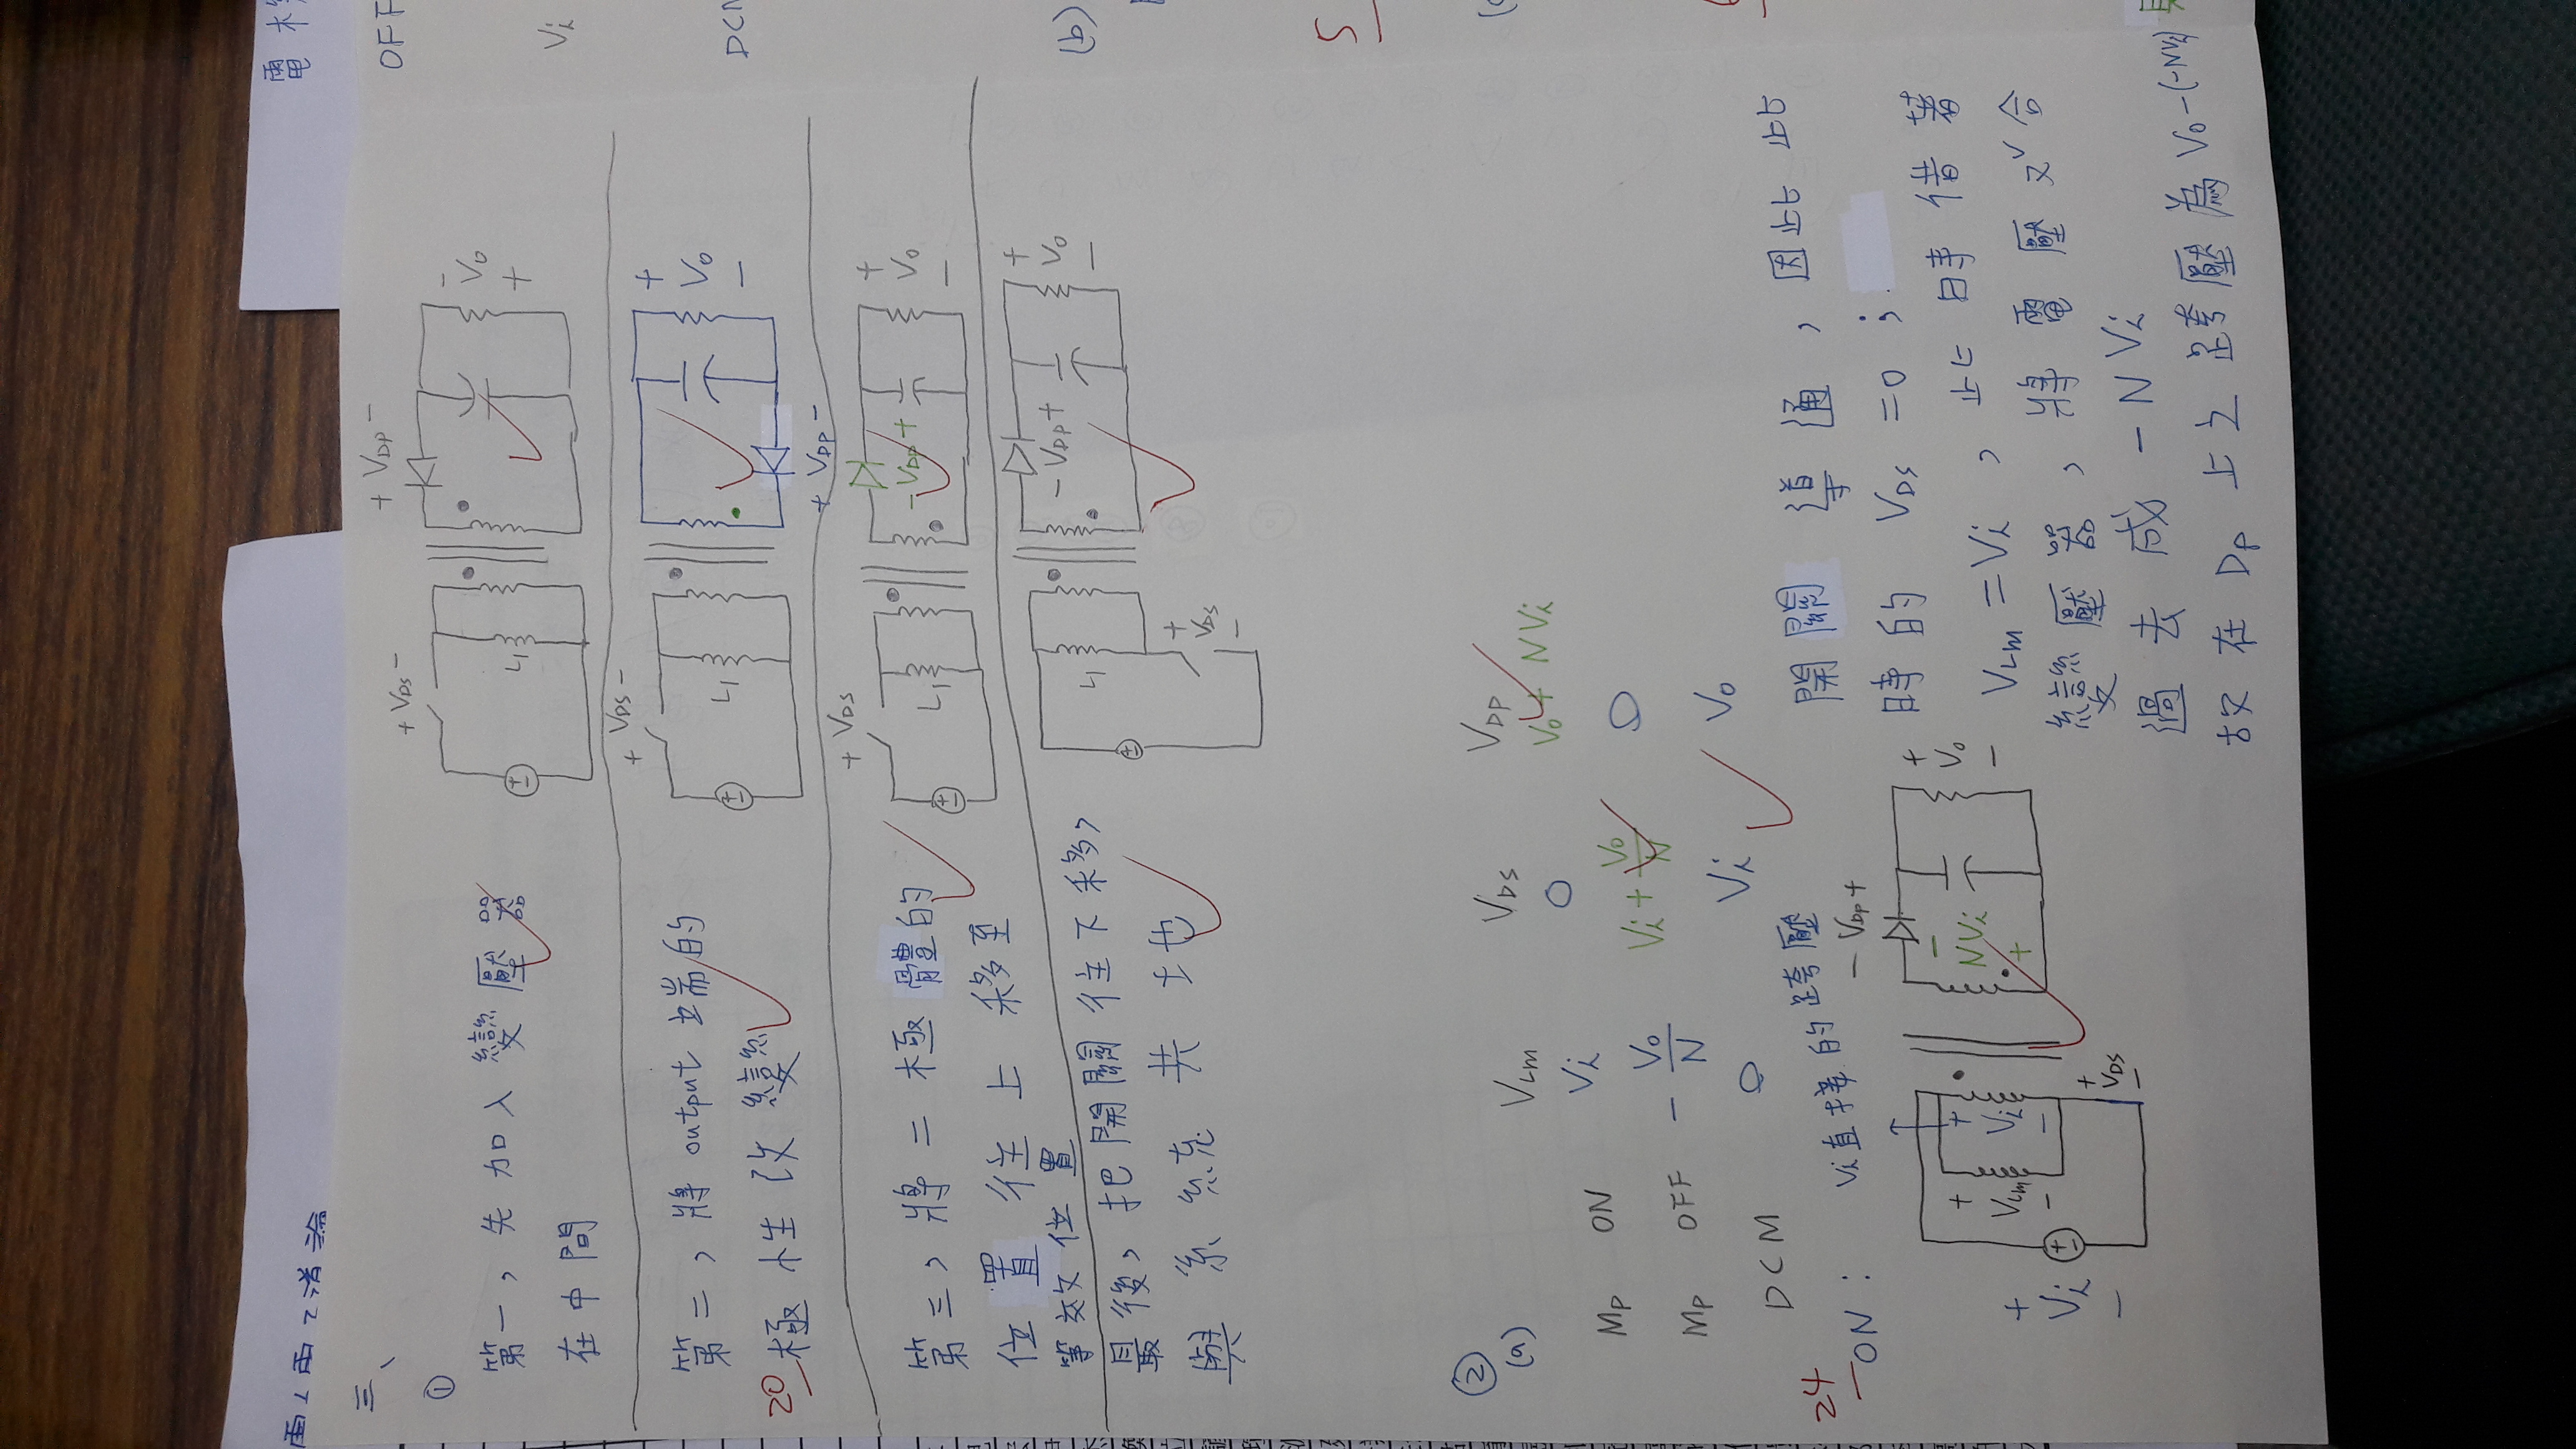 三、
①
第一，先加入變壓器
在中間
+ VDS -
+ VDP -
L1
-
Vo
+
第二，將 output 端的
極性改變
20
+ VDS -
L1
+
Vo
-
+ VDP -
第三，將二極體的
位置往上移至
等效位置
+ VDS
L1
- VDP +
+
Vo
-
最後，把開關往下移，
與系統共地
L1
+
VDS
-
- VDP +
+
Vo
-
②
(a)
VLm VDS VDP
Mp ON Vi 0 Vo + NVi
Mp OFF - Vo/N Vi + Vo/N 0
DCM 0 Vi Vo
24
ON： Vi直接的跨壓
- VDP +
+
Vi
-
+
VLm
-
+
Vi
-
+
VDS
-
-
NVi
+
+
Vo
-
開關導通，因此此
時的 VDS = 0；
VLm = Vi，此時借著
變壓器，將電壓耦合
過去成 - NVi
故在 DP 上之跨壓為 Vo-(-NVi)
電機
OFF
Vi
(b)
5